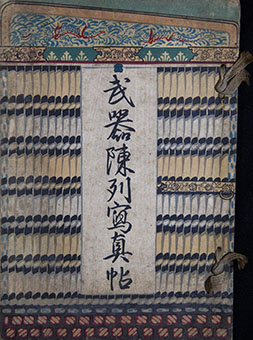 武器陳列寫真帖